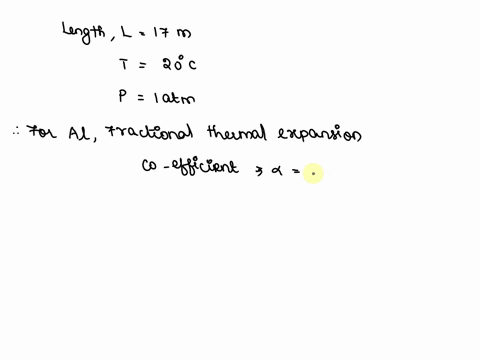 Length, L = 17 m
T = 20°C
P = 1 atm
∴ For Al, Fractional thermal expansion
co-efficient ⇒ α =